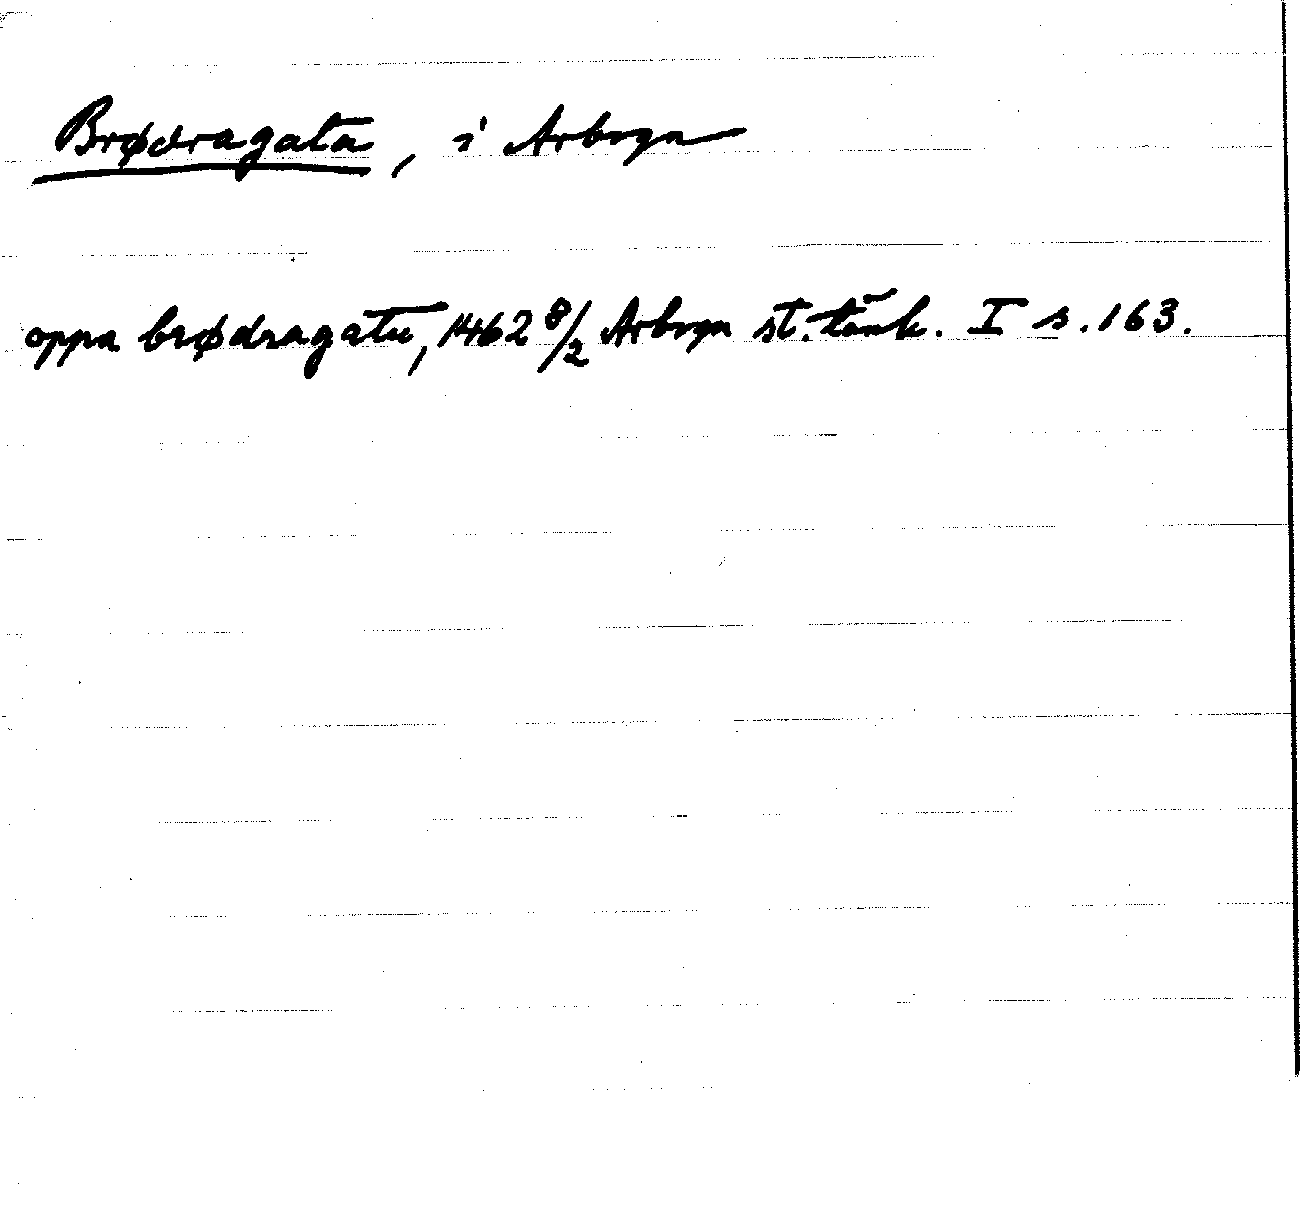 Brødragata, i Arboga
oppa brødragatu, 1462 8/2 Arboga st. tänk. I s. 163.